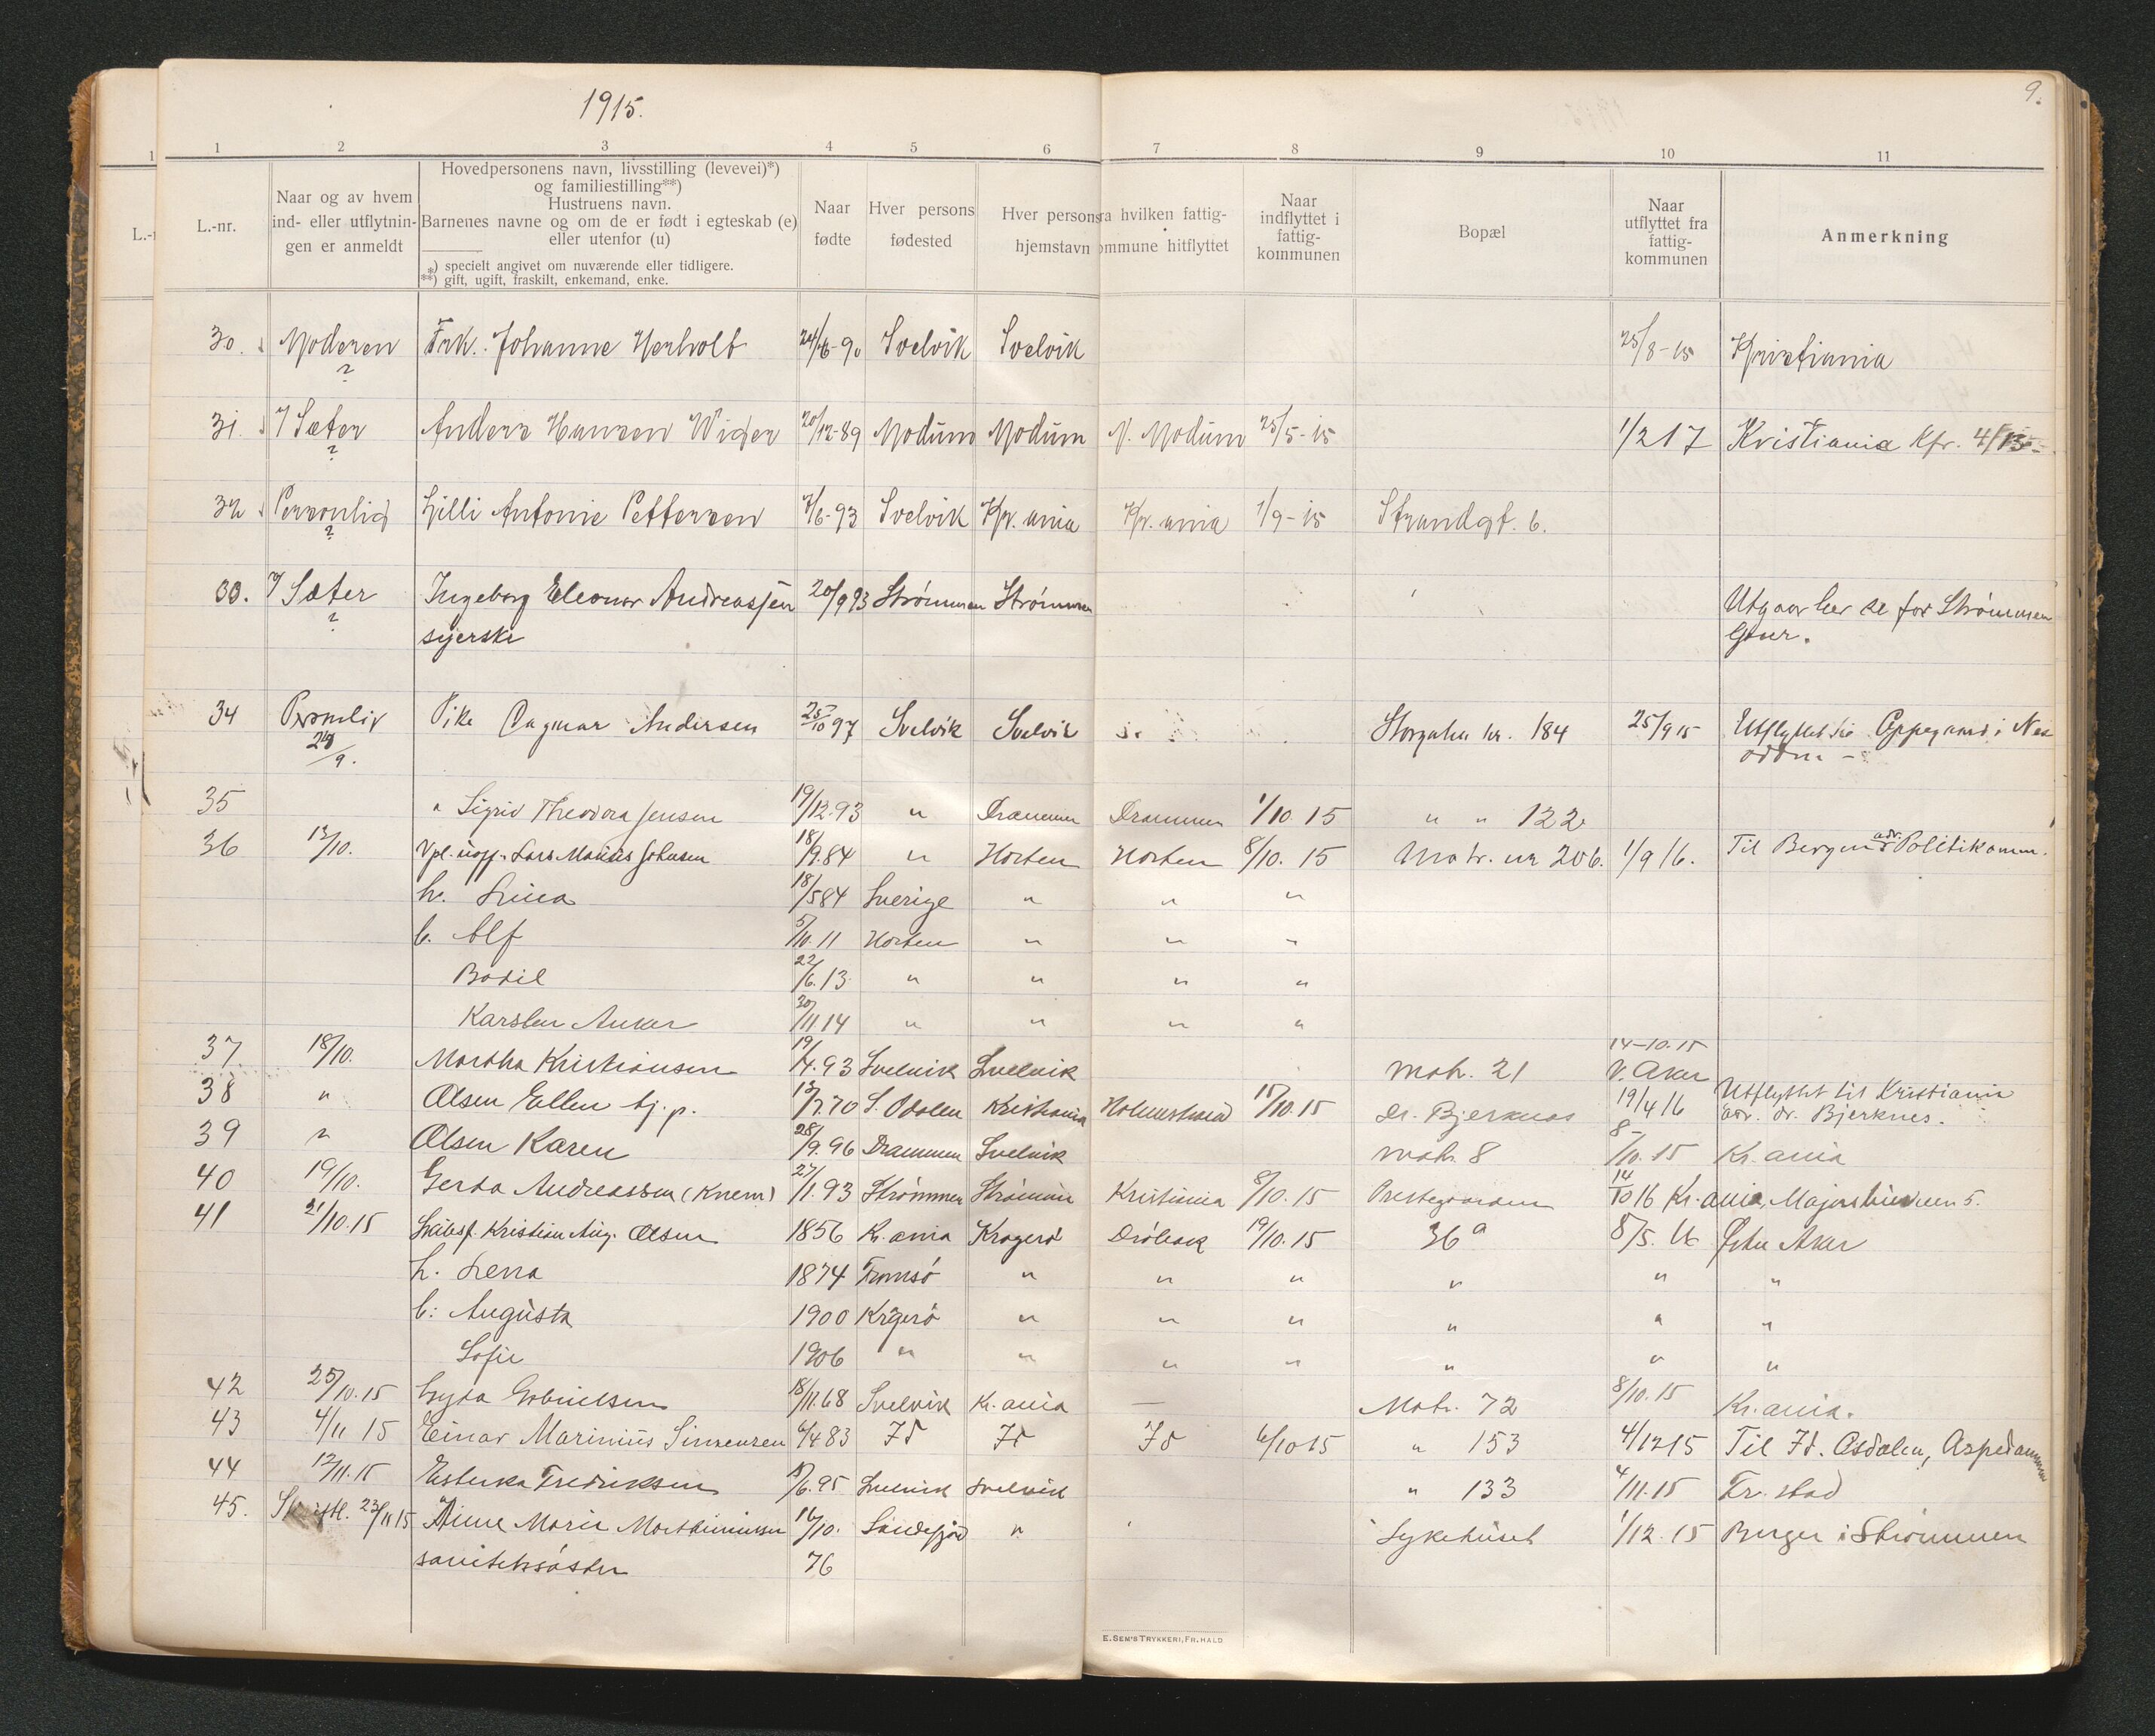 1915.
9.
1 2 3 4 5 6 7 8 9 10 11
L.-nr.
Naar og av hvem
ind- eller utflytnin-
gen er anmeldt
Hovedpersonens navn, livsstilling (levevei)*)
og familiestilling**)
Hustruens navn.
Barnenes navne og om de er født i egteskab (e)
eller utenfor (u)
*) specielt angivet om nuværende eller tidligere.
**) gift, ugift, fraskilt, enkemand, enke.
Naar
fødte
Hver persons
fødested
Hver persons
hjemstavn
ra hvilken fattig-
ommune hitflyttet
Naar
indflyttet i
fattig-
kommunen
Bopæl
Naar
utflyttet fra
fattig-
kommunen
Anmerkning
30. Moderen Frk. Johanne Herholt 24/6-90 Svelvik Svelvik 25/8-15 Kristiania
?
31. Sæter Anders Hansen Wiger 20/12-89 Modum Modum N. Modum 25/5-15 1/2 17 Kristiania Kfr. 4/15
?
32 Personlig Lilli Antonie Pettersen 7/6-93 Svelvik Kr.ania Kr.ania 1/9-15 Strandgt. 6.
?
33. Sæter Ingeborg Eleonor Andreassen 20/9 93 Strømmen Strømmen Utgaar her se for Strømmen
?
syerske
34 Personlig Pike Dagmar Andersen 25/10 97 Svelvik Svelvik Storgaten nr. 184 25/9 15 Utflyttet til Oppegaard i Nes
odden -
35 " Sigrid Theodora Jensen 19/12.93 " Drammen Drammen 1/10 15 " " 122
36 12/10. Vpl. uoff. Lars Matius Johnsen 18/9.84 " Horten Horten 8/10. 15 Matr. nr 206. 1/9 16. Til Bergen adr. Politikamm.
h. Lina 18/5 84 Sverige " " "
b. Alf 5/10.11 Horten " " "
Bodil 22/6.13 " " " "
Karsten Anker 30/11 14 " " " "
14-10.15
37. 18/10. Martha Kristiansen 19/4.93 Svelvik Svelvik Matr. 21 V. Aker
38 " Olsen Ellen tj.p. 13/7.70 S. Odalen Kristiania Holmestrand 15/10.15 Dr. Bjerknes 19/4 16 Utflyttet til Kristiania
adr. dr. Bjerknes.
39 " Olsen Karen 28/9.96 Drammen Svelvik Matr. 8 8/10.15 Kr.ania
40 19/10. Gerda Andreassen (Knem) 27/11.93 Strømmen Strømmen Kristiania 8/10.15 Prestegaarden 14/10 16 Kr.ania, Majorstuveien 5.
41 21/10.15 Skibsf. Kristian Aug. Olsen 1856 Kr.ania Kragerø Drøbak 19/10.15 36a 8/5.16 Østre Aker
h. Lena 1874 Tromsø " " " " " "
b: Augusta 1900 Kragerø " " " " " "
Sofie 1906 " " " " " " "
42 25/10.15 Gyda Gabrielsen 18/11.68 Svelvik Kr.ania — Matr. 72 8/10.15 Kr.ania.
43 4/11 15 Einar Marinius Simensen 6/4 83 Id Id Id 6/10 15 " 153 4/12 15 Til Id. Osdalen, Aspedammen
44 12/11.15 Esterka Fredriksen 8/6.95 Svelvik Svelvik " 133 4/11.15 Fr.stad
45. Skriftl. 23/11 15 Anne Marie Marthinussen 16/10. Sandefjord " Sykehuset 1/12.15 Berger i Strømmen
sanitetssøster 76
E. SEM'S TRYKKERI, FR.HALD